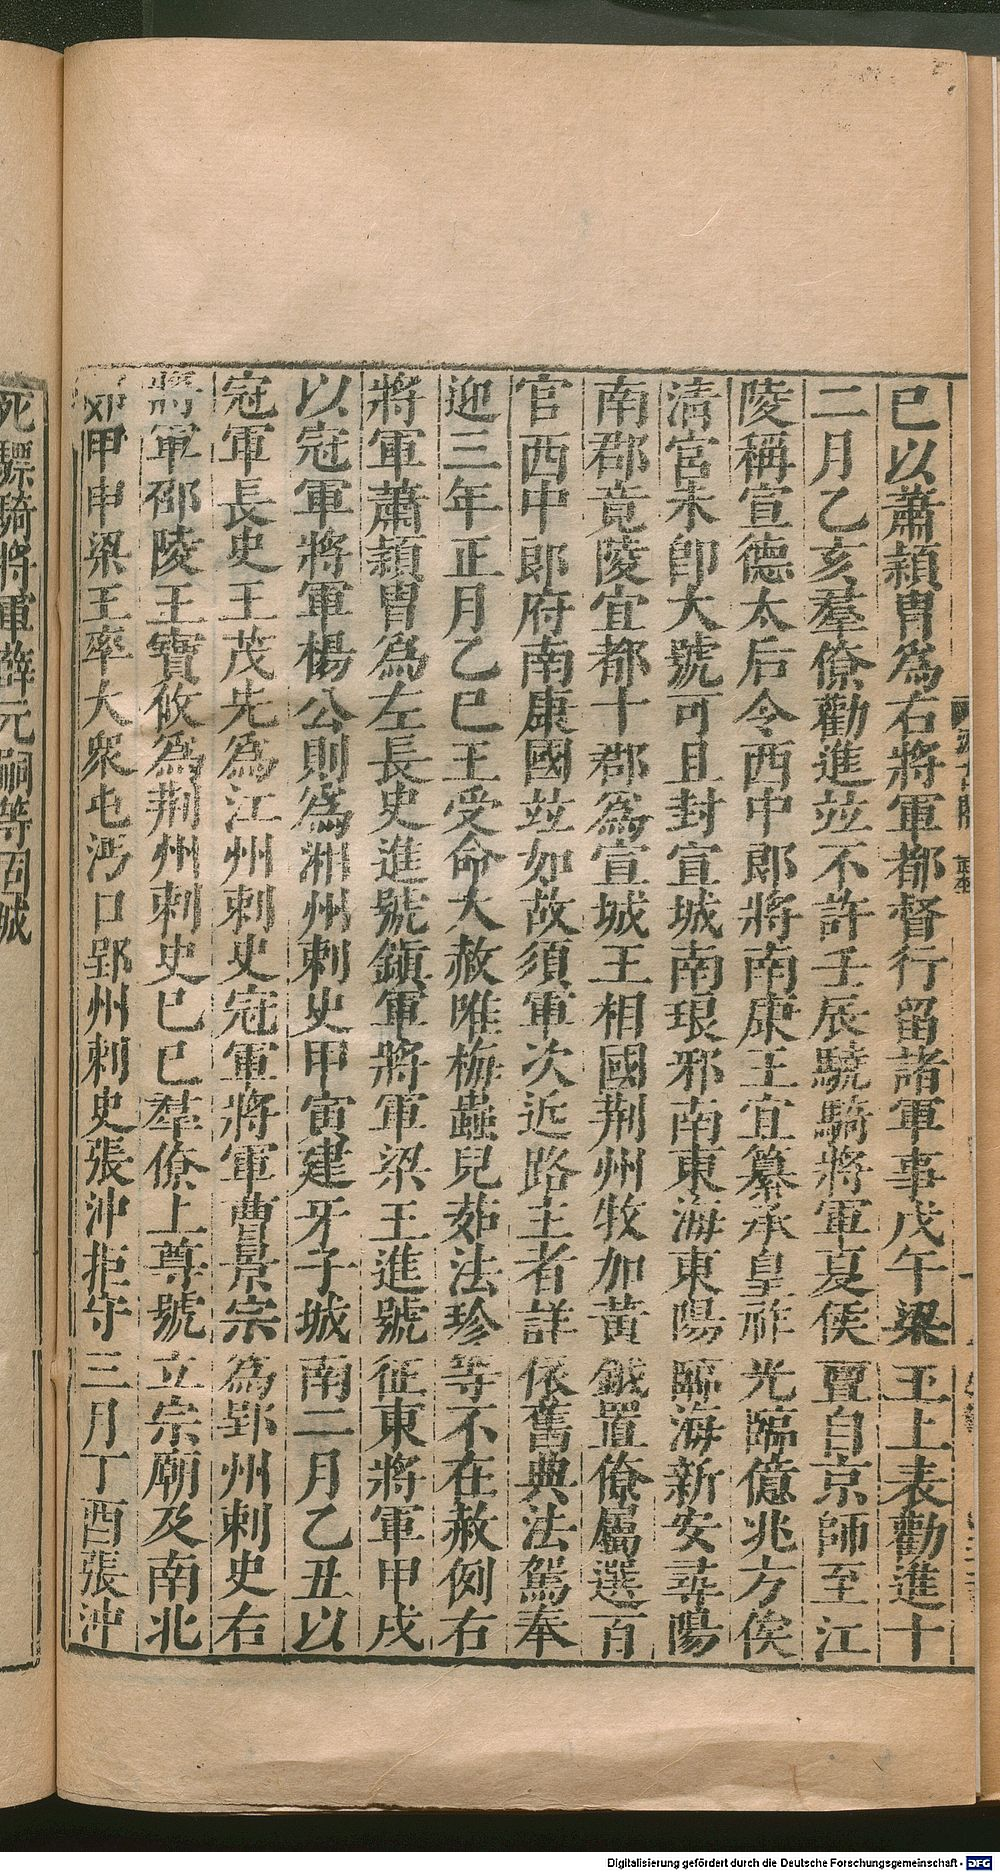 已以蕭穎冑爲右將軍都督行留諸軍事戊午梁王上表勸進十
二月乙亥羣僚勸進竝不許壬辰驍騎將軍夏侯亶自京師至江
陵稱宣德太后令西中郎將南康王宜纂承皇祚光臨億兆方俟
清宮未卽大號可且封宣城南琅邪南東海東陽臨海新安尋陽
南郡竟陵宜都十郡爲宣城王相國荆州牧加黃鉞置僚屬選百
官西中郎府南康國竝如故須軍次近路主者詳依舊典法駕奉
迎三年正月乙巳王受命大赦唯梅蟲兒茹法珍等不在赦例右
將軍蕭穎冑爲左長史進號鎭軍將軍梁王進號征東將軍甲戌
以冠軍將軍楊公則爲湘州刺史甲寅建牙于城南二月乙丑以
冠軍長史王茂先爲江州刺史冠軍將軍曹景宗爲郢州刺史右
將軍邵陵王寶攸爲荆州刺史巳巳羣僚上尊號立宗廟及南北
郊甲申梁王率大衆屯沔口郢州刺史張沖拒守三月丁酉張沖
死驃騎將軍薛元嗣等固城
Digitalisierung gefördert durch die Deutsche Forschungsgemeinschaft - DFG